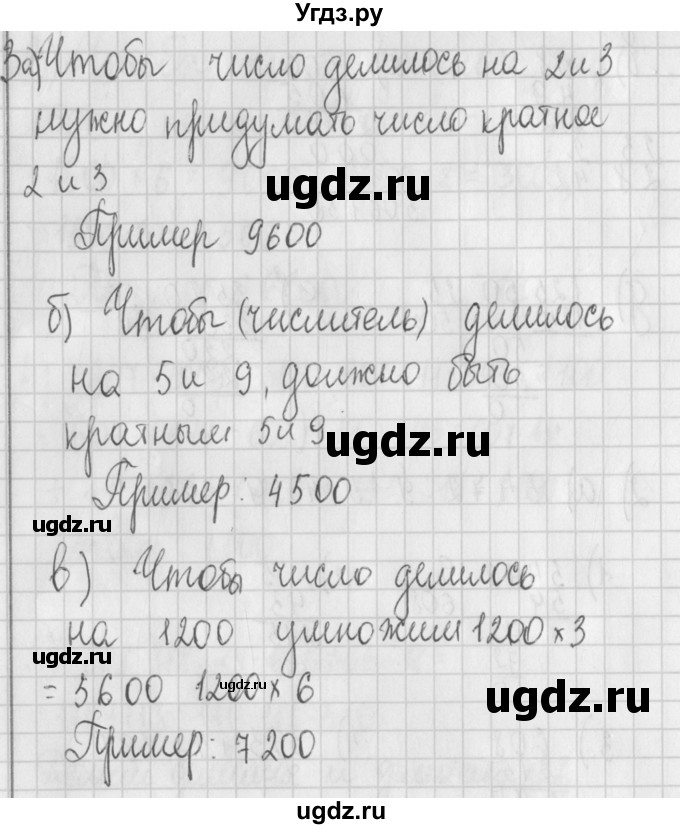 Угдз.ру
3а) Чтобы число делилось на 2 и 3
нужно придумать число кратное
2 и 3
ugdz.ru
Пример 9600
б) Чтобы (числитель) делилось
на 5 и 9, должно быть
кратным 5 и 9
ugdz.ru
Пример: 4500
ugdz.ru
в) Чтобы число делилось
на 1200 умножим 1200 × 3
ugdz.ru
= 5600 1200 × 6
ugdz.ru
ugdz.ru
Пример: 7200
ugdz.ru